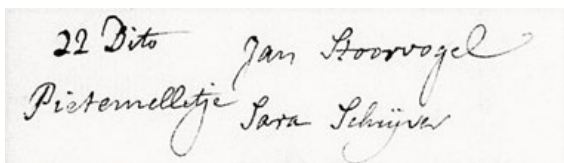 22 Dito Jan Stoorvogel
Pieternelletje Sara Schijver